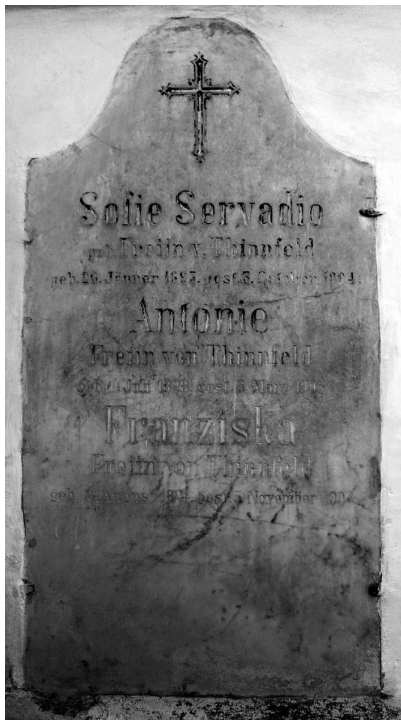 Sofie Servadio
geb. Freiin v. Thinnfeld
geb. 20. Jänner gest. 3. October
Antonie
Freiin von Thinnfeld
geb. Juli gest. März
Franziska
Freiin von Thinnfeld
geb. August gest. November